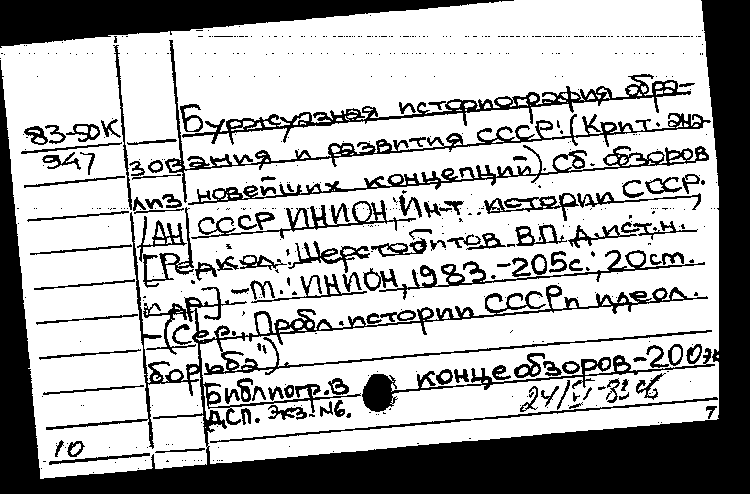 83-50К
947
Буржуазная историография обра-
зования и развития СССР: (Крит. ана-
лиз новейших концепций). Сб. обзоров
/АН СССР, ИНИОН, Ин-т истории СССР;
[Редкол.: Шерстобитов В.П. д.ист.н.
и др.]. -М.: ИНИОН, 1983. -205с.; 20см.
-(Сер. "Пробл. истории СССР и идеол.
борьба").
Библиогр. в конце обзоров. -200 эк
ДСП. Экз. №6.
24/VI-83
10
7